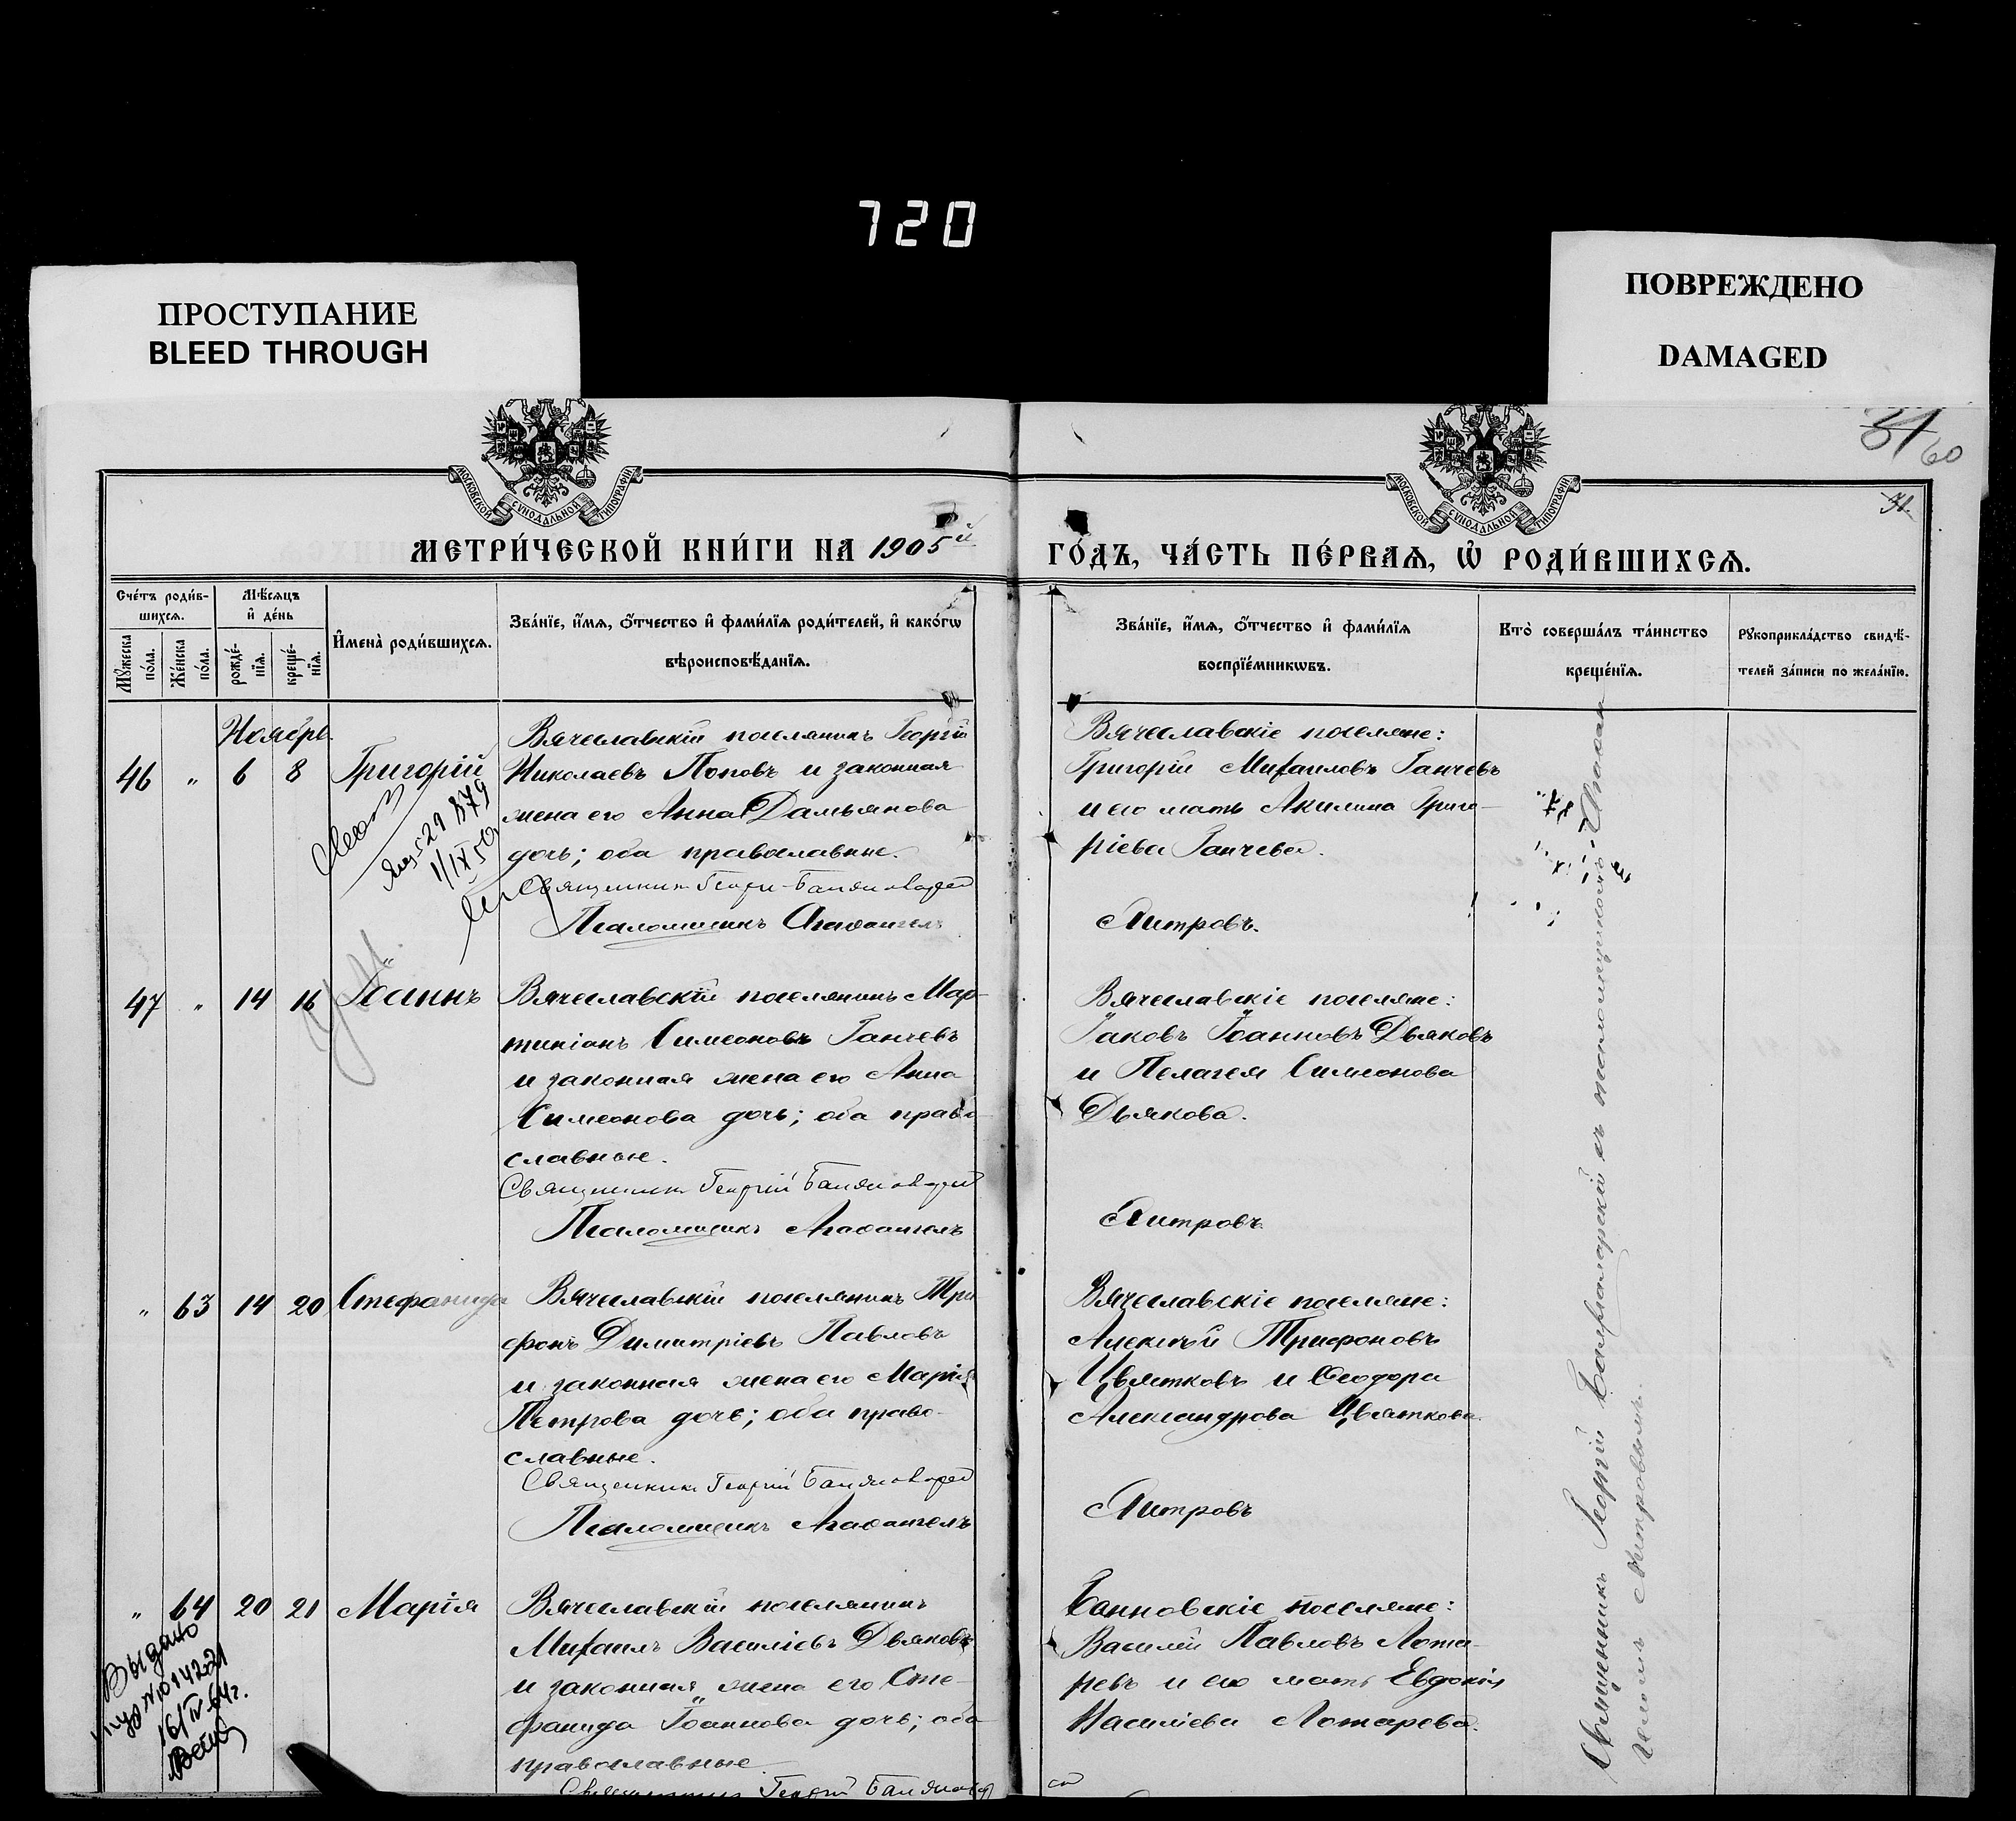 720
ПРОСТУПАНИЕ
BLEED THROUGH
ПОВРЕЖДЕНО
DAMAGED
МОСКОВСКОЙ СѴНОДАЛЬНОЙ ТИПОГРАФІИ
МОСКОВСКОЙ СѴНОДАЛЬНОЙ ТИПОГРАФІИ
31
60
31.
МЕТРИ́ЧЕСКОЙ КНИ́ГИ НА 1905й
ГО́ДЪ, ЧА́СТЬ ПЕ́РВАѦ, Ѽ РОДИ́ВШИХСѦ.
Сче́тъ роди́в-
шихсѧ.
Мꙋ́жеска
по́ла.
Же́нска
по́ла.
Мѣ́сѧцъ
и҆ де́нь
рожде́-
нїѧ.
креще́-
нїѧ.
И҆мена̀ роди́вшихсѧ.
Зва́нїе, и҆́мѧ, ѻ҆́тчество и҆ фами́лїѧ роди́телей, и҆ како́гѡ
вѣроисповѣ́данїѧ.
Зва́нїе, и҆́мѧ, ѻ҆́тчество и҆ фами́лїѧ
воспрїе́мникѡвъ.
Кто̀ соверша́лъ та́инство
креще́нїѧ.
Рꙋкоприкла́дство свидѣ́-
телей за́писи по жела́нїю.
Ноябрь.
46 " 6 8 Григорій
Вячеславскій поселянинъ Георгій
Николаевъ Поповъ и законная
жена его Анна Дамьянова
дочь; оба православные.
Священникъ Георгій
Псаломщикъ Агафангелъ
Вячеславскіе поселяне:
Григорій Михаиловъ Ганчевъ
и его мать Акилина Григо-
ріева Ганчева.
Митровъ.
29 879
1/IX 50
47 " 14 16 Іоаннъ
Вячеславскій поселянинъ Мар-
тиніанъ Симеоновъ Ганчевъ
и законная жена его Анна
Симеонова дочь; оба право-
славные.
Священникъ Георгій
Псаломщикъ Агафангелъ
Вячеславскіе поселяне:
Іаковъ Іоанновъ Дьяковъ
и Пелагея Симеонова
Дьякова.
Митровъ
" 63 14 20 Стефанида
Вячеславскій поселянинъ Три-
фонъ Димитріевъ Павловъ
и законная жена его Марія
Петрова дочь; оба право-
славные.
Священникъ Георгій
Псаломщикъ Агафангелъ
Вячеславскіе поселяне:
Алексѣй Трифоновъ
Цвятковъ и Ѳеодора
Александрова Цвяткова.
Митровъ
" 64 20 21 Марія
Вячеславскій поселянинъ
Михаилъ Василіевъ Дьяковъ
и законная жена его Сте-
фанида Іоаннова дочь; оба
православные.
Священникъ Георгій
Банновскіе поселяне:
Василій Павловъ Лота-
ревъ и его мать Евдокія
Василіева Лотарева.
Выдано
16/IV 64г.
Священникъ Георгій
съ псаломщикомъ
Митровымъ.